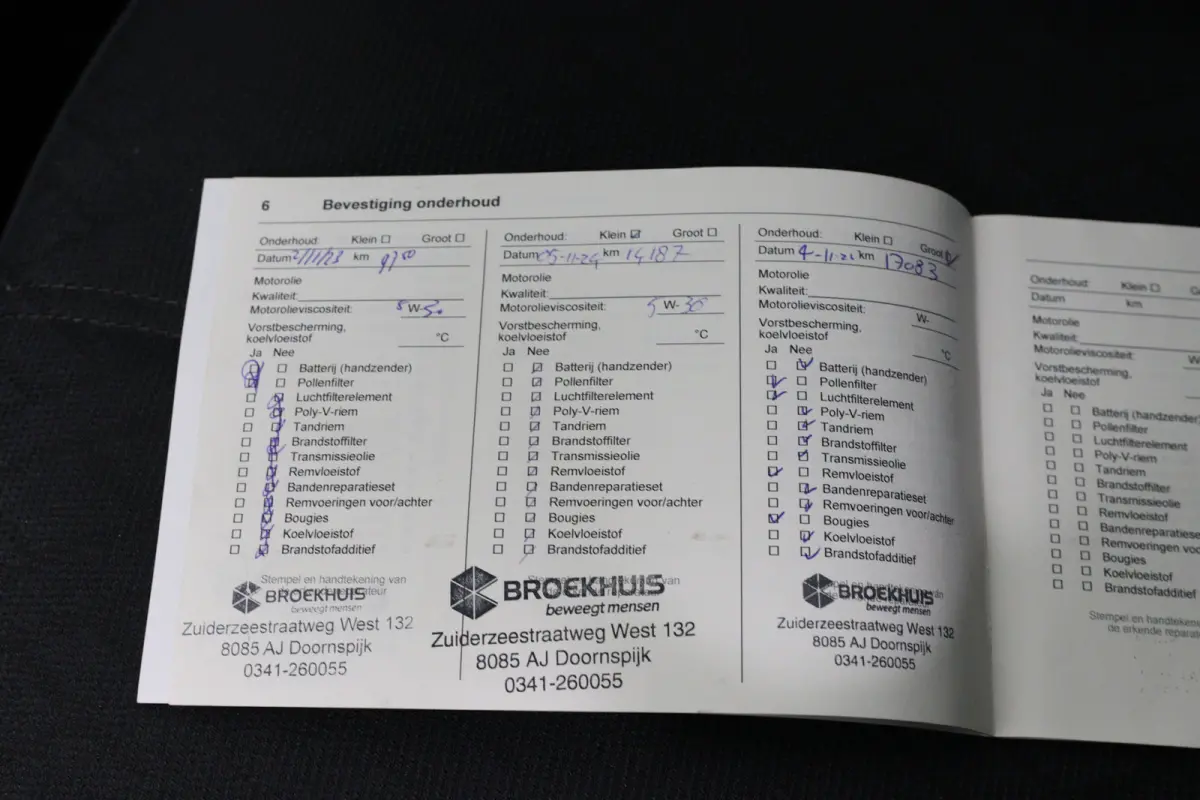 6 Bevestiging onderhoud
Onderhoud: Klein ☐ Groot ☐
Datum 2/11/23 km 9750
Motorolie
Kwaliteit:
Motorolieviscositeit: 5 W-30
Vorstbescherming,
koelvloeistof °C
Ja Nee
Batterij (handzender)
Pollenfilter
Luchtfilterelement
Poly-V-riem
Tandriem
Brandstoffilter
Transmissieolie
Remvloeistof
Bandenreparatieset
Remvoeringen voor/achter
Bougies
Koelvloeistof
Brandstofadditief
Stempel en handtekening van
BROEKHUIS
beweegt mensen
Zuiderzeestraatweg West 132
8085 AJ Doornspijk
0341-260055
Onderhoud: Klein ☑ Groot ☐
Datum 05-11-24 km 14187
Motorolie
Kwaliteit:
Motorolieviscositeit: 5 W-30
Vorstbescherming,
koelvloeistof °C
Ja Nee
Batterij (handzender)
Pollenfilter
Luchtfilterelement
Poly-V-riem
Tandriem
Brandstoffilter
Transmissieolie
Remvloeistof
Bandenreparatieset
Remvoeringen voor/achter
Bougies
Koelvloeistof
Brandstofadditief
BROEKHUIS
beweegt mensen
Zuiderzeestraatweg West 132
8085 AJ Doornspijk
0341-260055
Onderhoud: Klein ☐ Groot ☑
Datum km 17083
Motorolie
Kwaliteit:
Motorolieviscositeit: W-
Vorstbescherming,
koelvloeistof °C
Ja Nee
Batterij (handzender)
Pollenfilter
Luchtfilterelement
Poly-V-riem
Tandriem
Brandstoffilter
Transmissieolie
Remvloeistof
Bandenreparatieset
Remvoeringen voor/achter
Bougies
Koelvloeistof
Brandstofadditief
BROEKHUIS
beweegt mensen
Zuiderzeestraatweg West 132
8085 AJ Doornspijk
0341-260055
Onderhoud: Klein ☐
Datum km
Motorolie
Kwaliteit:
Motorolieviscositeit: W-
Vorstbescherming,
koelvloeistof
Ja Nee
Batterij (handzender)
Pollenfilter
Luchtfilterelement
Poly-V-riem
Tandriem
Brandstoffilter
Transmissieolie
Remvloeistof
Bandenreparatieset
Remvoeringen
Bougies
Koelvloeistof
Brandstofadditief
Stempel en
de erkende